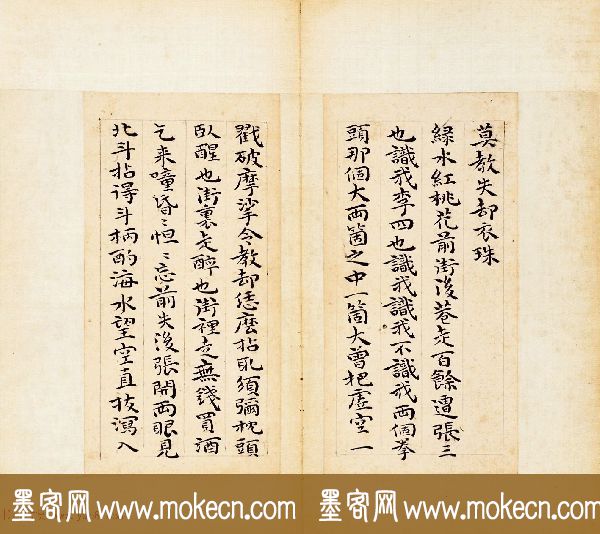 莫教失却衣珠
緑水紅桃花前街後巷走百餘遭張三
也識我李四也識我識我不識我两個拳
頭那個大两箇之中一箇大曾把虛空一
戳破摩挲令教却恁麽拈取須彌枕頭
臥醒也街裏走醉也街裡走無錢買酒
乞来噇昏〻怛〻忘前失後張開两眼見
北斗拈得斗柄酌海水望空直拔瀉入
墨客网 www.mokecn.com 墨客网 www.mokecn.com